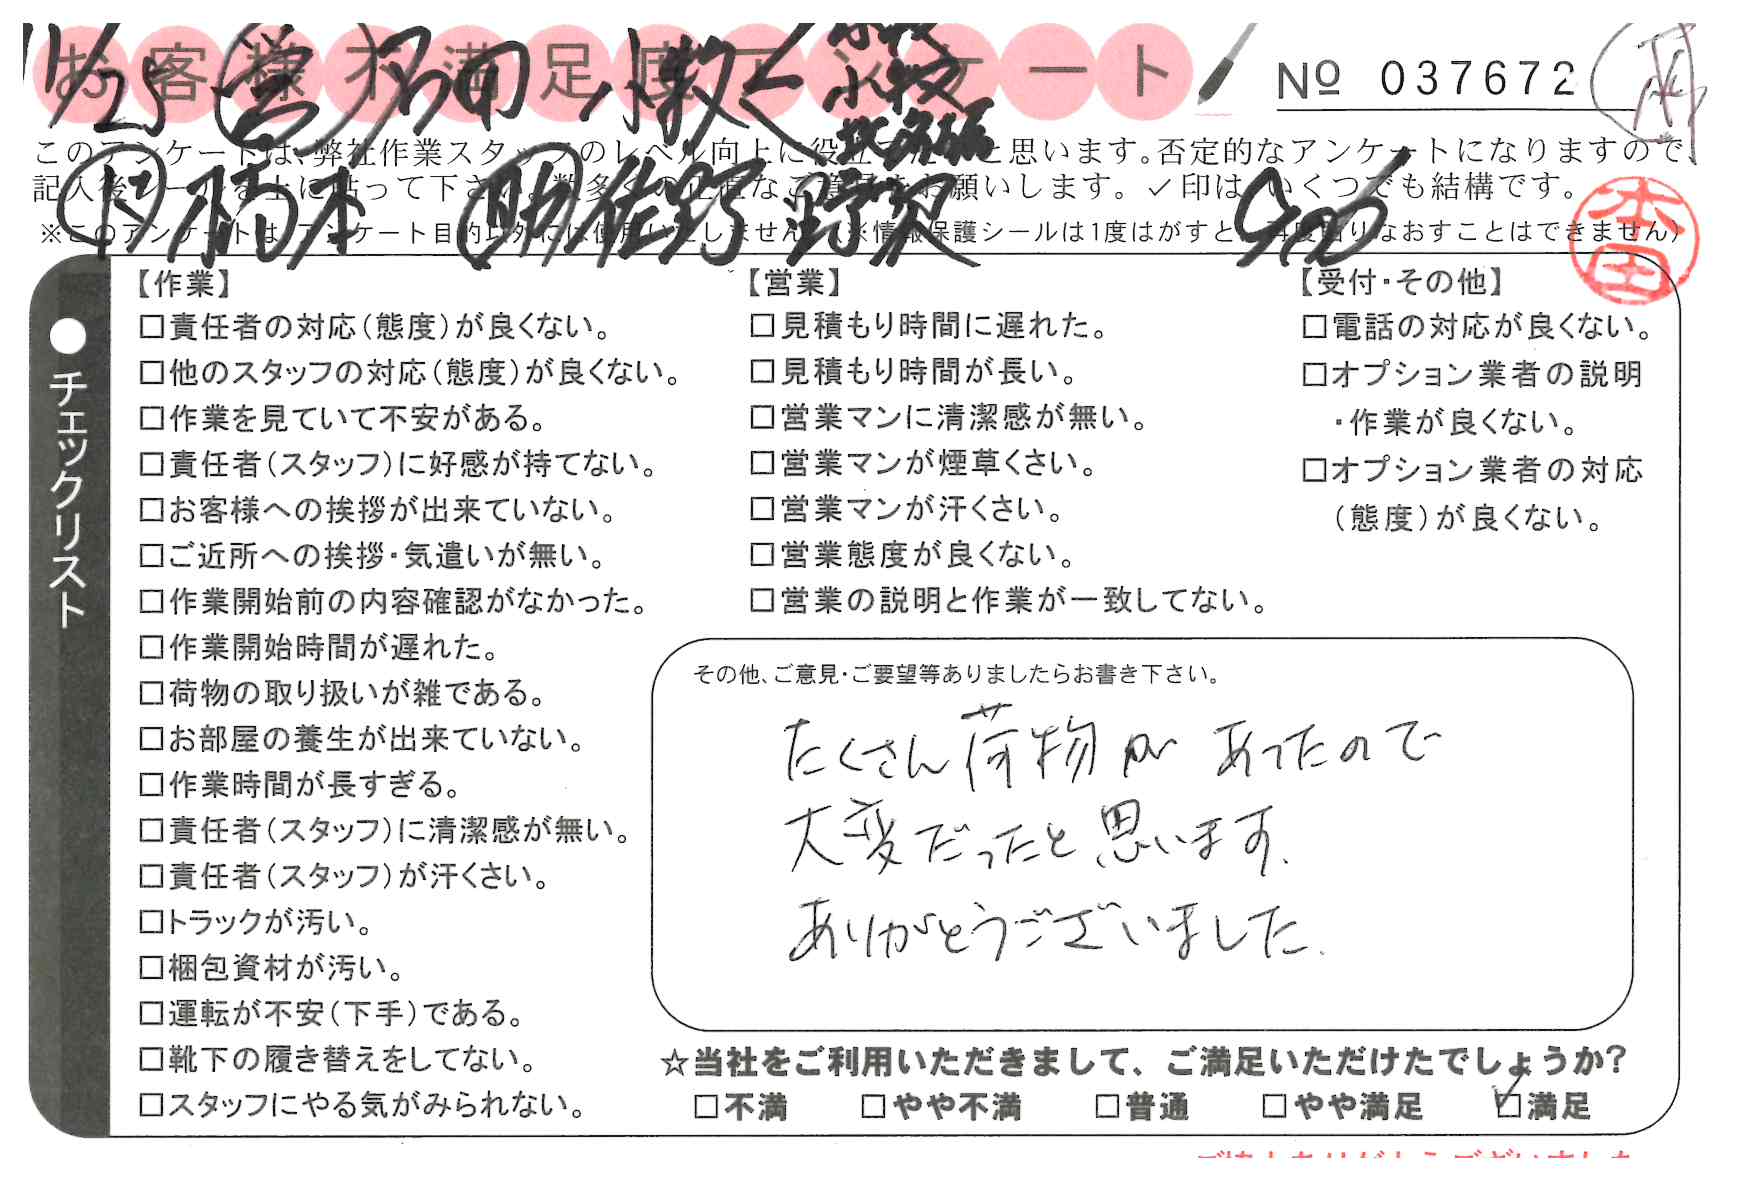 お客様不満足度アンケート
№ 037672
11/25 営
このアンケートは、弊社作業スタッフのレベル向上に役立てたいと思います。否定的なアンケートになりますので、
記入後シールを上に貼って下さい。数多くの正直なご意見をお願いします。✓印は、いくつでも結構です。
※このアンケートは、アンケート目的以外には使用いたしません。(※情報保護シールは1度はがすと、再度貼りなおすことはできません)
橋本 助 佐野
本田
●チェックリスト
【作業】
□責任者の対応(態度)が良くない。
□他のスタッフの対応(態度)が良くない。
□作業を見ていて不安がある。
□責任者(スタッフ)に好感が持てない。
□お客様への挨拶が出来ていない。
□ご近所への挨拶・気遣いが無い。
□作業開始前の内容確認がなかった。
□作業開始時間が遅れた。
□荷物の取り扱いが雑である。
□お部屋の養生が出来ていない。
□作業時間が長すぎる。
□責任者(スタッフ)に清潔感が無い。
□責任者(スタッフ)が汗くさい。
□トラックが汚い。
□梱包資材が汚い。
□運転が不安(下手)である。
□靴下の履き替えをしてない。
□スタッフにやる気がみられない。
【営業】
□見積もり時間に遅れた。
□見積もり時間が長い。
□営業マンに清潔感が無い。
□営業マンが煙草くさい。
□営業マンが汗くさい。
□営業態度が良くない。
□営業の説明と作業が一致してない。
【受付・その他】
□電話の対応が良くない。
□オプション業者の説明
・作業が良くない。
□オプション業者の対応
(態度)が良くない。
その他、ご意見・ご要望等ありましたらお書き下さい。
たくさん荷物が あったので
大変だったと思います。
ありがとうございました.
☆当社をご利用いただきまして、ご満足いただけたでしょうか?
□不満 □やや不満 □普通 □やや満足 ☑満足